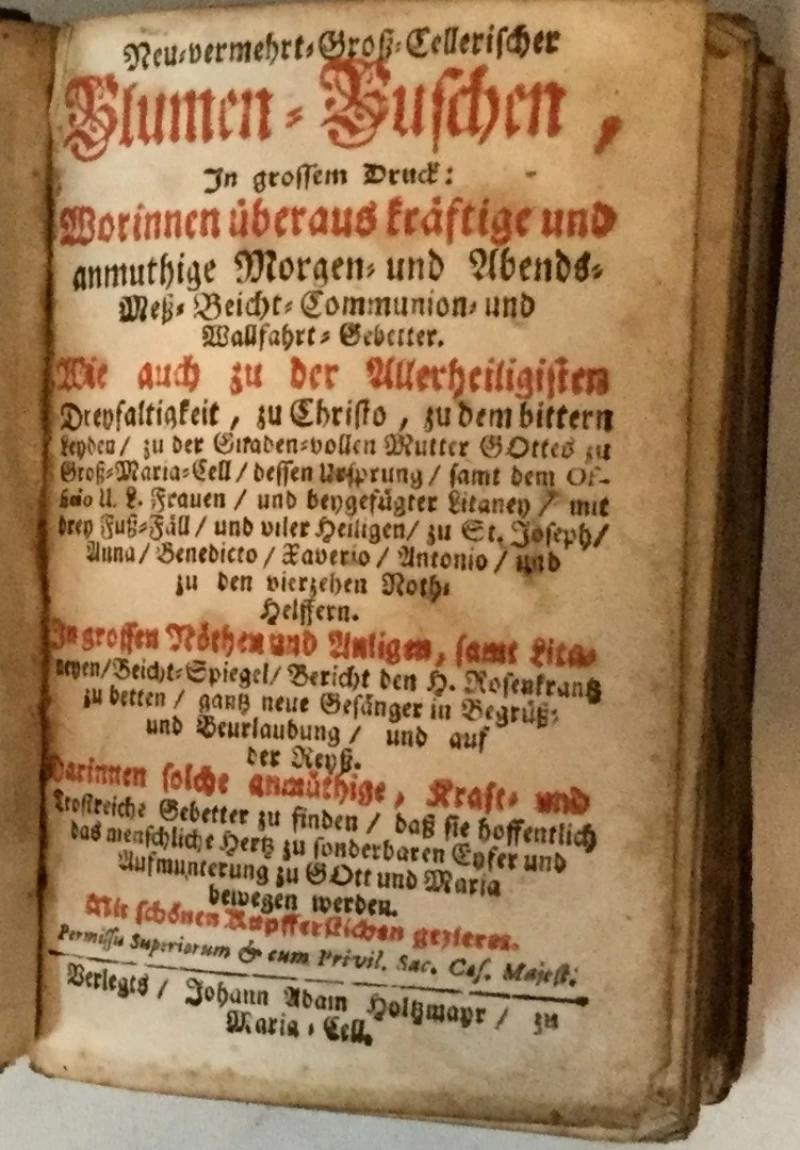 Neu-vermehrt-Groß-Cellerischer
Blumen-Buschen,
In grossem Druck:
Worinnen überaus kräftige und
anmuthige Morgen- und Abends-
Meß- Beicht- Communion- und
Wallfahrt- Gebetter.
Wie auch zu der Allerheiligisten
Dreyfaltigkeit, zu Christo, zu dem bittern
Leyden/ zu der Gnaden-vollen Mutter GOttes zu
Groß-Maria-Cell/ dessen Ursprung/ samt dem Of-
ficio U. L. Frauen/ und beygefügter Litaney/ mit
drey Fuß-Fäll/ und viler Heiligen/ zu St. Joseph/
Anna/ Benedicto/ Xaverio/ Antonio/ und
zu den vierzehen Noth-
Helffern.
In grossen Nöthen und Anligen, samt Lita-
neyen/ Beicht-Spiegel/ Bericht den H. Rosenkrantz
zu betten/ gantz neue Gesänger in Begrüß-
und Beurlaubung/ und auf
der Reyß.
Darinnen solche anmüthige, Kraft- und
Trostreiche Gebetter zu finden/ daß sie hoffentlich
das menschliche Hertz zu sonderbaren Eyfer und
Aufmunterung zu GOtt und Maria
bewegen werden.
Mit schönen Kupfferstichen gezieret.
Permissu Superiorum & cum Privil. Sac. Cæs. Majest.
Verlegts/ Johann Adam Holtzmayr/ zu
Maria-Cell.